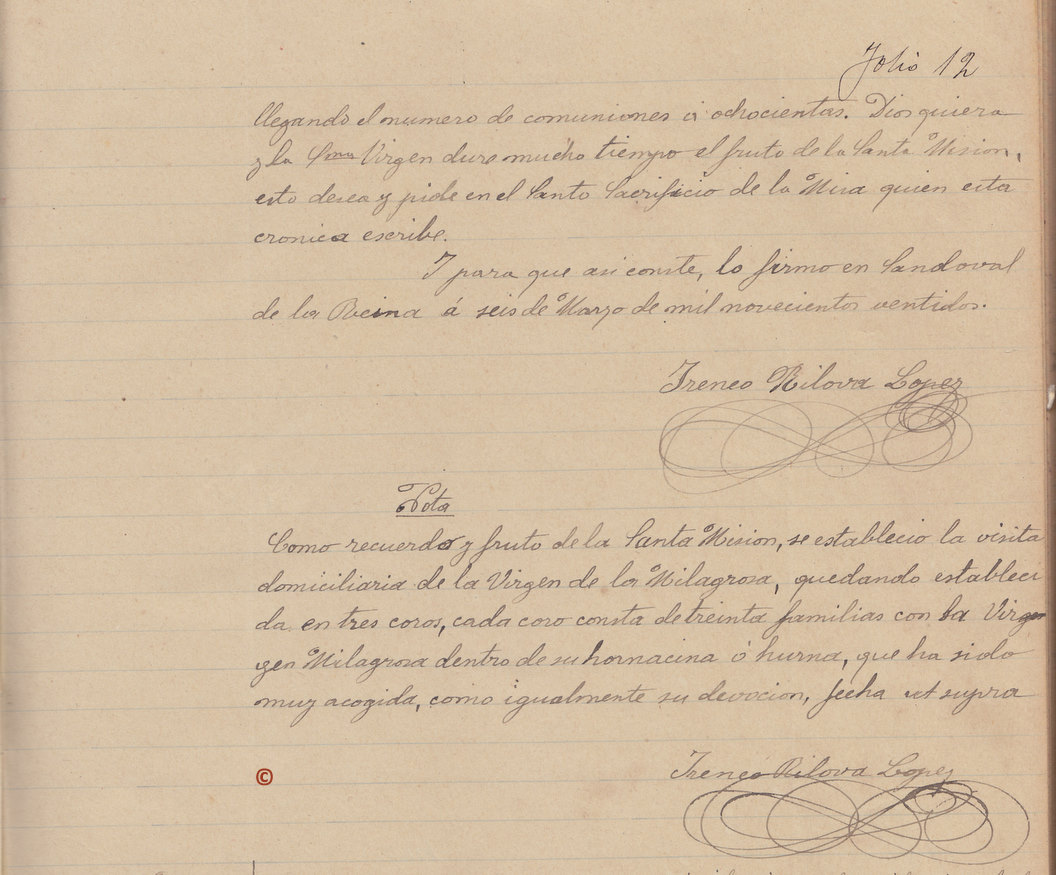 Folio 12
llegando el numero de comuniones á ochocientas. Dios quiera
y la Sma Virgen dure mucho tiempo el fruto de la Santa Mision,
esto desea y pide en el Santo Sacrificio de la Misa quien esta
cronica escribe.
Y para que asi conste, lo firmo en Sandoval
de la Reina á seis de Marzo de mil novecientos ventidos.
Ireneo Rilova Lopez
Nota
Como recuerdo y fruto de la Santa Mision, se establecio la visita
domiciliaria de la Virgen de la Milagrosa, quedando estableci
da en tres coros, cada coro consta de treinta familias con la Virgen
gen Milagrosa dentro de su hornacina ó hurna, que ha sido
muy acogida, como igualmente su devocion, fecha ut supra
Ireneo Rilova Lopez
©